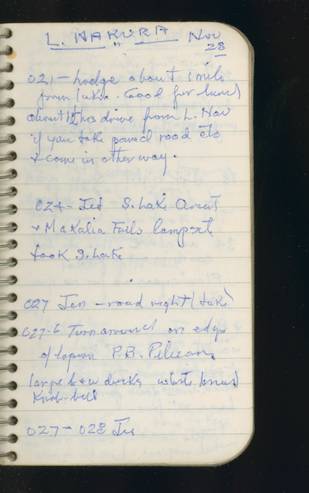 L. NAKURA Nov
28
021 - Lodge about 1 mile
from lake. Good for lunch
about 1½ hrs drive from L. Nav
if you take paved road etc
+ come in other way.
024 - Jct S. Lake Circuit
+ Makalia Falls Campsit
took S. Lake
027 Jct - road right (take)
027.6 Turnaround on edge
of lagoon P.B. Pelican,
large b & w ducks white
Knob-bill
027 - 028 Jct